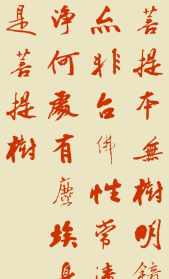 菩提本無樹明鏡
亦非台佛性常清
淨何處有塵埃身
是菩提樹